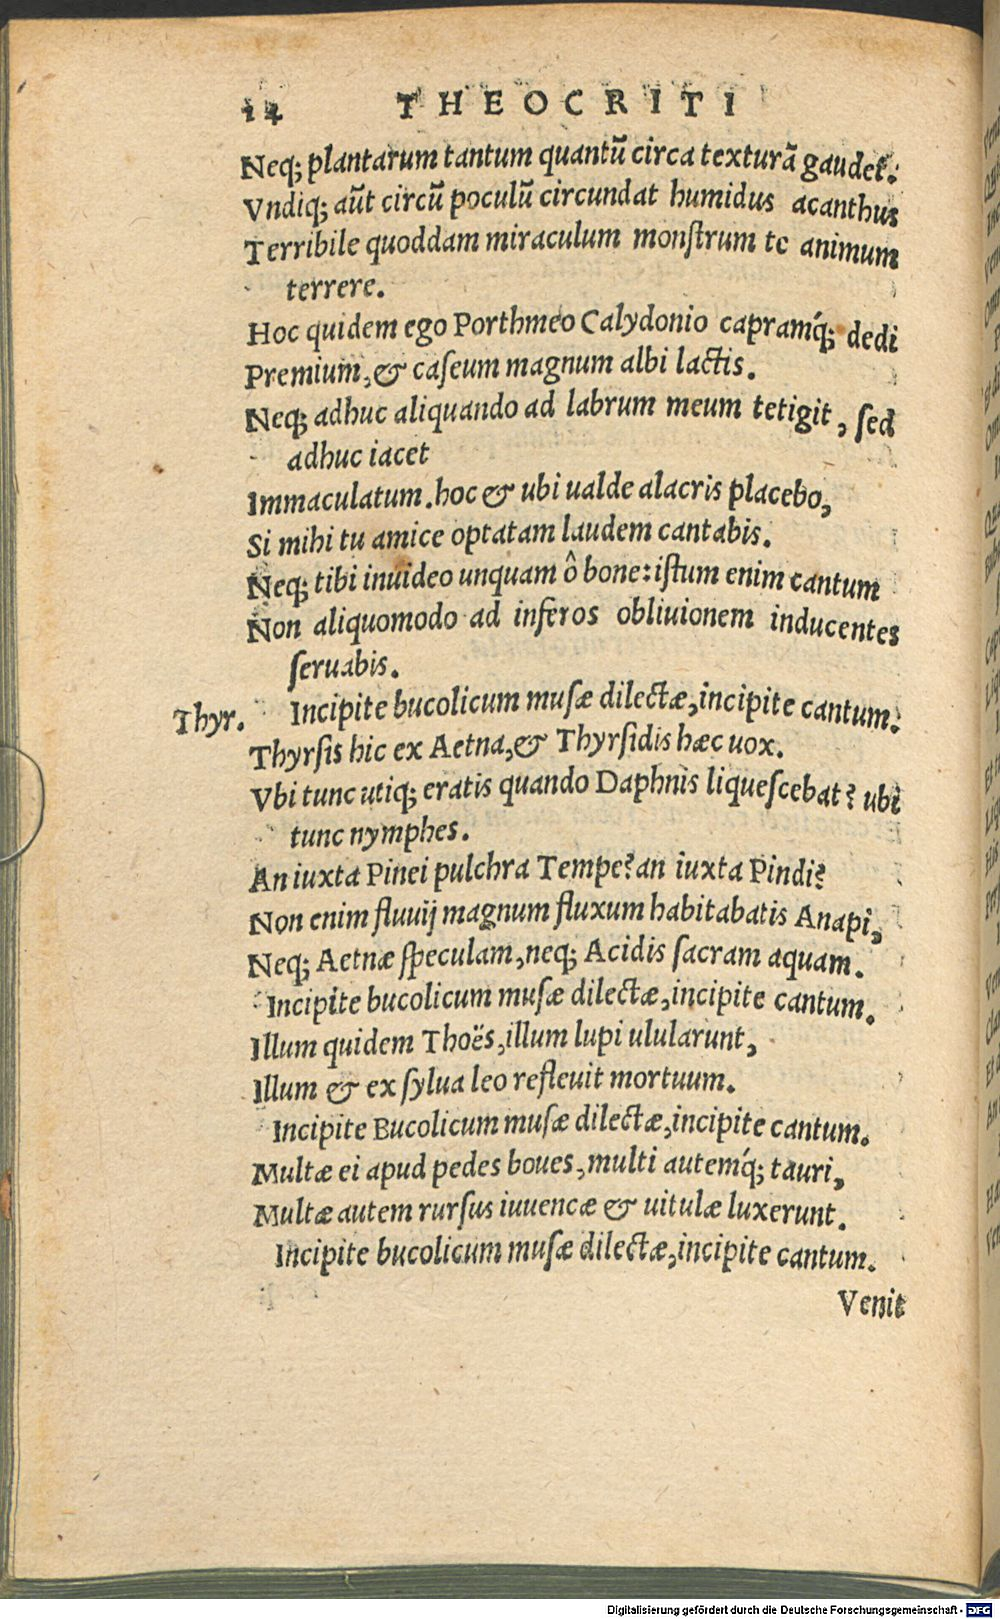 14 THEOCRITI
Neq; plantarum tantum quantũ circa texturã gaudet.
Vndiq; aũt circũ poculũ circundat humidus acanthus
Terribile quoddam miraculum monſtrum te animum
terrere.
Hoc quidem ego Porthmeo Calydonio capramq́; dedi
Premium, & caſeum magnum albi lactis.
Neq; adhuc aliquando ad labrum meum tetigit, ſed
adhuc iacet
Immaculatum. hoc & ubi ualde alacris placebo,
Si mihi tu amice optatam laudem cantabis.
Neq; tibi inuideo unquam ô bone: iſtum enim cantum
Non aliquomodo ad inferos obliuionem inducentes
ſeruabis.
Thyr. Incipite bucolicum muſæ dilectæ, incipite cantum.
Thyrſis hic ex Aetna, & Thyrſidis hæc uox.
Vbi tunc utiq; eratis quando Daphnis liqueſcebat? ubi
tunc nymphes.
An iuxta Pinei pulchra Tempe? an iuxta Pindi?
Non enim fluuij magnum fluxum habitabatis Anapi,
Neq; Aetnæ ſpeculam, neq; Acidis ſacram aquam.
Incipite bucolicum muſæ dilectæ, incipite cantum.
Illum quidem Thoës, illum lupi ulularunt,
Illum & ex ſylua leo refleuit mortuum.
Incipite Bucolicum muſæ dilectæ, incipite cantum.
Multæ ei apud pedes boues, multi autemq́; tauri,
Multæ autem rurſus iuuencæ & uitulæ luxerunt.
Incipite bucolicum muſæ dilectæ, incipite cantum.
Venit
Digitalisierung gefördert durch die Deutsche Forschungsgemeinschaft - DFG